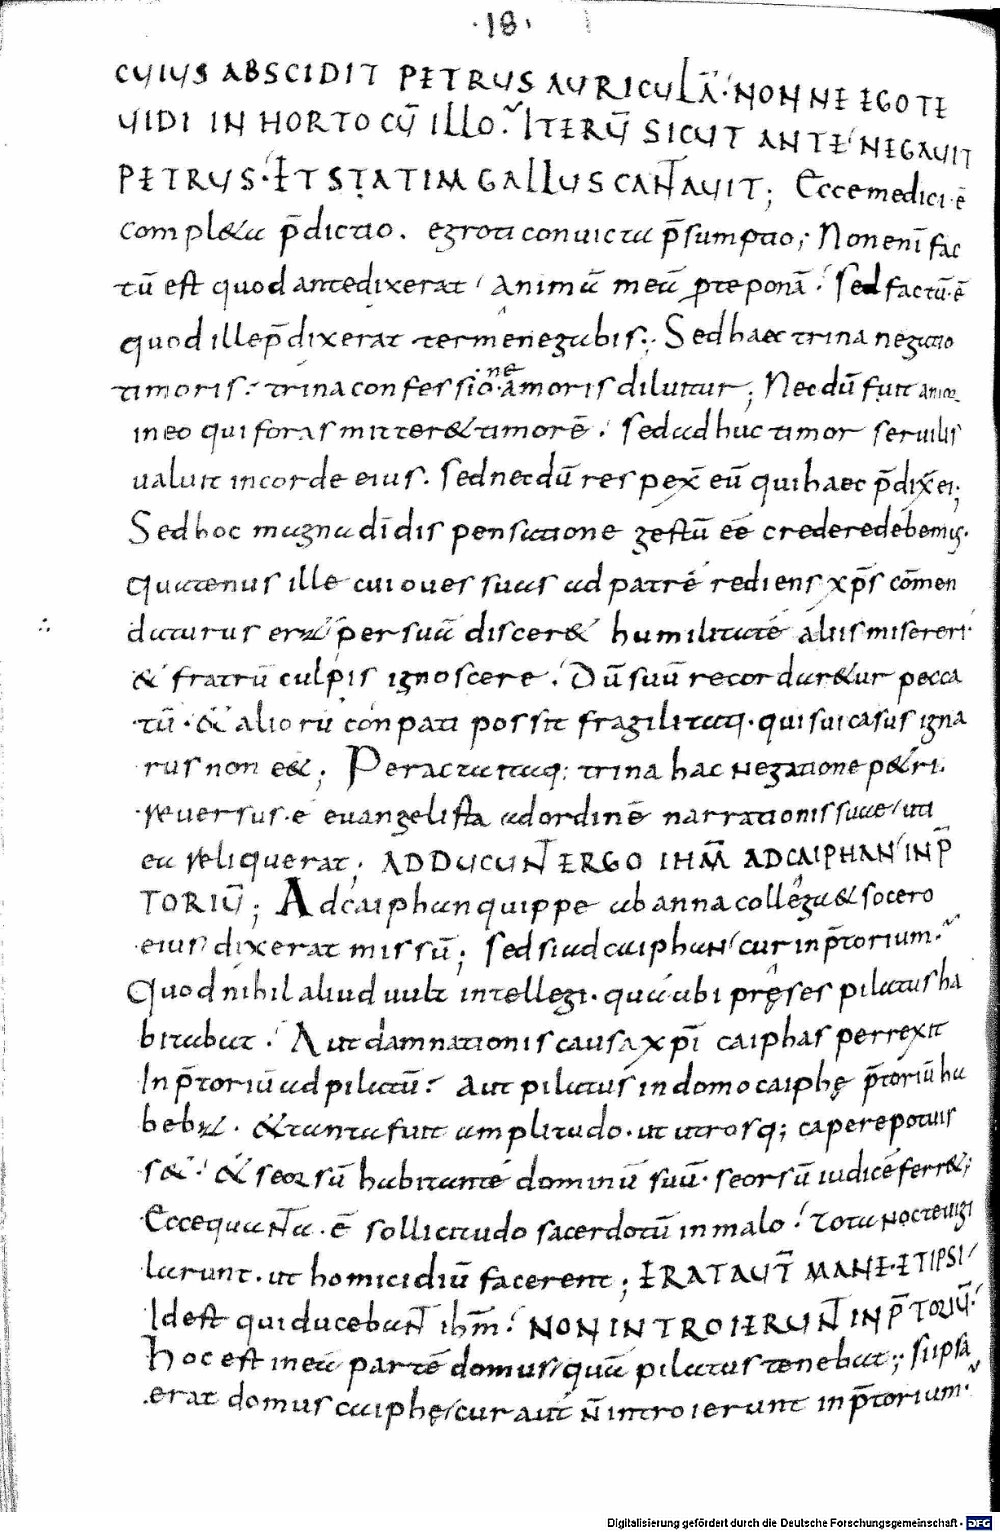 ·18·
CUIUS ABSCIDIT PETRUS AURICULĀ· NONNE EGO TE
UIDI IN HORTO CŪ ILLO? ITERŪ SICUT ANTE NEGAUIT
PETRUS· ET STATIM GALLUS CANTAUIT; Ecce medici·ē
compl&a p̄dictio. egroti conuicta p̄sumptio; Non enī fac
tū est quod antedixerat animū meū pro te ponā. Sed factū·ē
quod ille p̄dixerat ter me negabis. Sed haec trina negatio
timoris. trina confessione amoris diluitur; Necdū fuit amor
in eo qui foras mitter& timorē. sed adhuc timor seruilis
ualuit in corde eius. Sed necdū respex̄ eū qui haec p̄dix̄ ei;
Sed hoc magna dī dispensatione gestū eē credere debemus.
Quatenus ille cui oues suas ad patrē rediens xp̄s cōmen
daturus erat per suā discer& humilitatē aliis misereri
& fratrū culpis ignoscere. Dū suū recordar&ur pecca
tū· & aliorū conpati possit fragilitati· qui sui casus igna
rus non e&; Peracta itaq: trina hac negatione p&ri.
reuersus·ē euangelista ad ordinē narrationis suae uti
ea reliquerat; ADDUCUNT ERGO IHM̄ AD CAIPHAN IN P̄
TORIŪ; Ad caiphan quippe ab anna collega & socero
eius dixerat missū; Sed si ad caiphan cur in p̄torium?
Quod nihil aliud uult intellegi· quā ubi pręses pilatus ha
bitabat. Aut damnationis causa xp̄i caiphas perrexit
In p̄toriū ad pilatū. Aut pilatus in domo caiphę p̄toriū ha
beb&. & tanta fuit amplitudo· ut utrosq; capere potuis
s&. & seorsū habitantē dominū suū· seorsū iudicē ferr&;
Ecce quanta·ē sollicitudo sacerdotū in malo. Tota nocte uigi
larunt· ut homicidiū facerent; ERAT AUT̄ MANE· ET IPSI
Id est qui ducebant ihm̄. NON INTROIERUNT IN P̄TORIŪ·
Hoc est in eā partē domus quā pilatus tenebat; Si ipsa
erat domus caiphę cur aut n̄ introierunt in p̄torium?
Digitalisierung gefördert durch die Deutsche Forschungsgemeinschaft - DFG